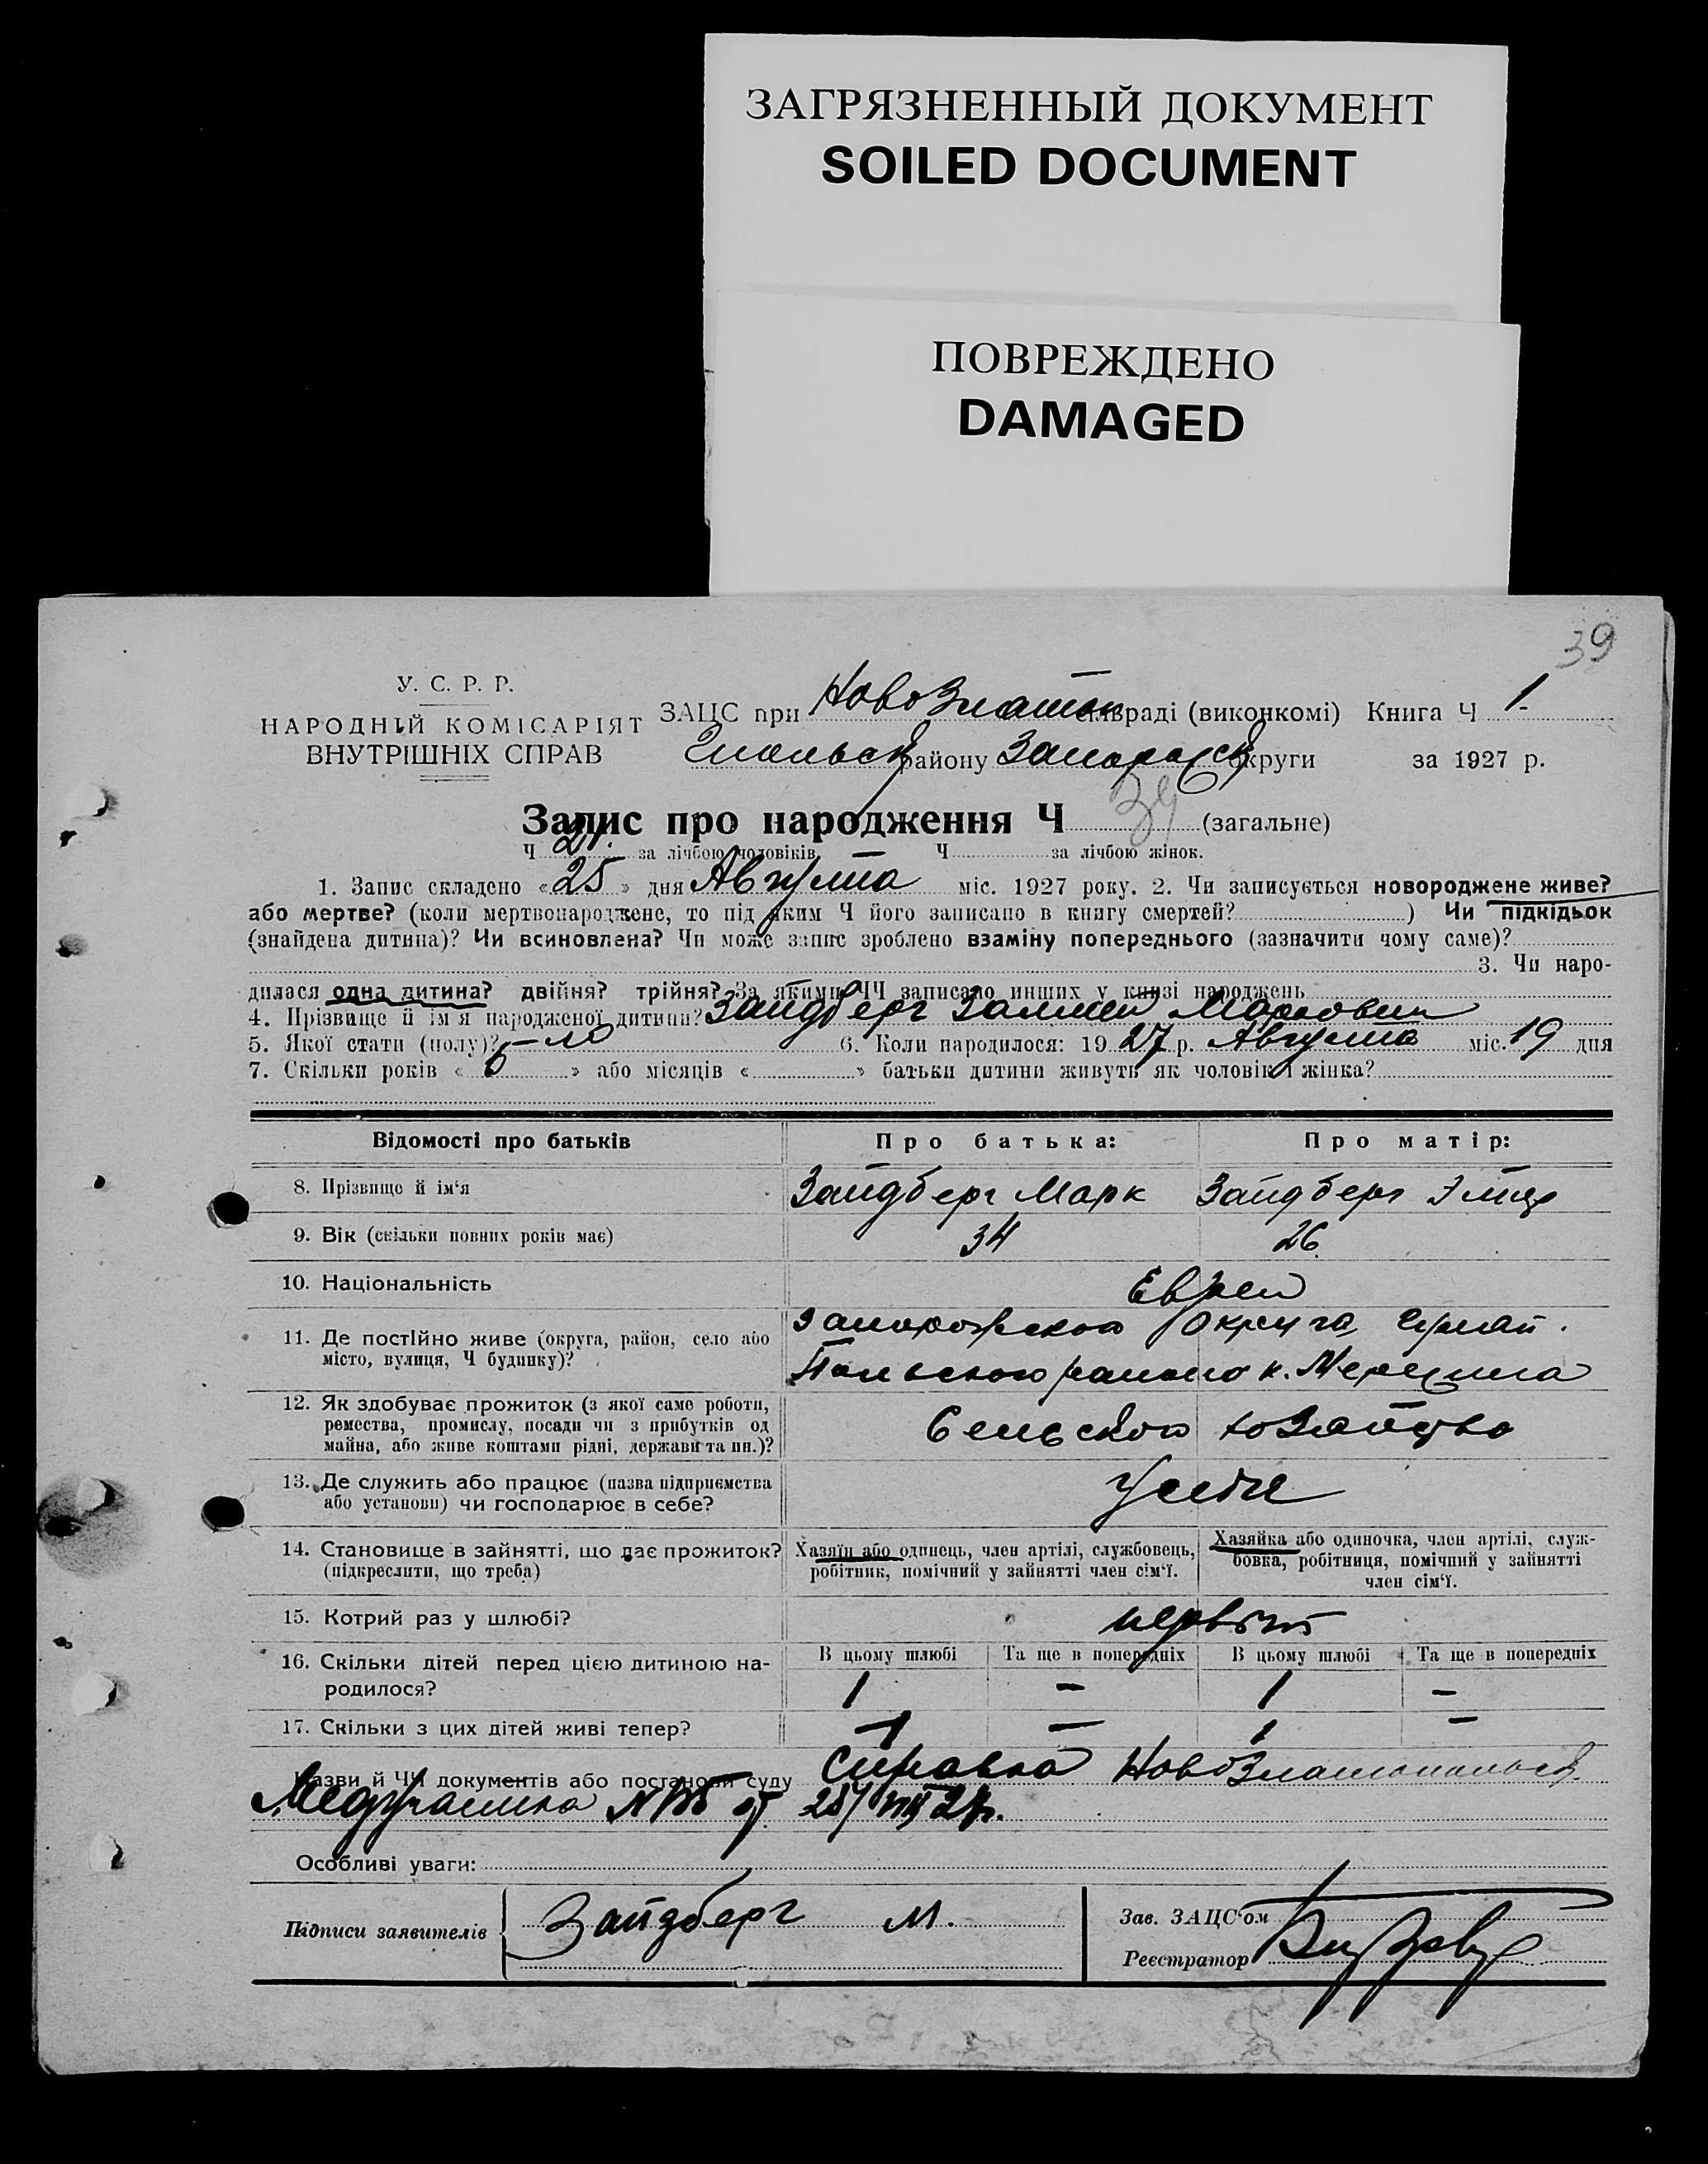 ЗАГРЯЗНЕННЫЙ ДОКУМЕНТ
SOILED DOCUMENT
ПОВРЕЖДЕНО
DAMAGED
39
У. С. Р. Р.
НАРОДНІЙ КОМІСАРІЯТ
ВНУТРІШНІХ СПРАВ
ЗАЦС при НовоЗлатоп сільраді (виконкомі) Книга Ч 1
району Запорожск округи за 1927 р.
Запис про народження Ч 39 (загальне)
Ч 21. за лічбою чоловіків Ч за лічбою жінок.
1. Запис складено « 25 » дня Августа міс. 1927 року. 2. Чи записується новороджене живе?
або мертве? (коли мертвонароджене, то під яким Ч його записано в книгу смертей? ) Чи підкідьок
(знайдена дитина)? Чи всиновлена? Чи може запис зроблено взаміну попереднього (зазначити чому саме)?
3. Чи наро-
дилася одна дитина? двійня? трійня? За якими ЧЧ записано инших у книзі народжень
4. Прізвище й ім'я народженої дитини? Зайдберг Залмен Маркович
5. Якої стати (полу)? 6. Коли народилося: 19 27 р. Августа міс. 19 дня
7. Скільки років « 6 » або місяців « » батьки дитини живуть як чоловік і жінка?
Відомості про батьків
Про батька:
Про матір:
8. Прізвище й ім'я
Зайдберг Марк
Зайдберг
9. Вік (скільки повних років має)
34
26
10. Національність
Евреи
11. Де постійно живе (округа, район, село або
місто, вулиця, Ч будинку)?
Запорожского Округа
района к.
12. Як здобуває прожиток (з якої саме роботи,
ремества, промислу, посади чи з прибутків од
майна, або живе коштами рідні, держави та ин.)?
Сельского хозайство
13. Де служить або працює (назва підприємства
або установи) чи господарює в себе?
У себе
14. Становище в зайнятті, що дає прожиток?
(підкреслити, що треба)
Хазяїн або одинець, член артілі, службовець,
робітник, помічний у зайнятті член сім'ї.
Хазяйка або одиночка, член артілі, служ-
бовка, робітниця, помічний у зайнятті
член сім'ї.
15. Котрий раз у шлюбі?
первый
16. Скільки дітей перед цією дитиною на-
родилося?
В цьому шлюбі
Та ще в попередніх
В цьому шлюбі
Та ще в попередніх
1 – 1 –
17. Скільки з цих дітей живі тепер?
1 – 1 –
Назви й ЧЧ документів або постанови суду Справка НовоЗлатопольск.
Медучастка № от 25/VIII 27г.
Особливі уваги:
Підписи заявителів
Зайдберг М.
Зав. ЗАЦС'ом
Реєстратор